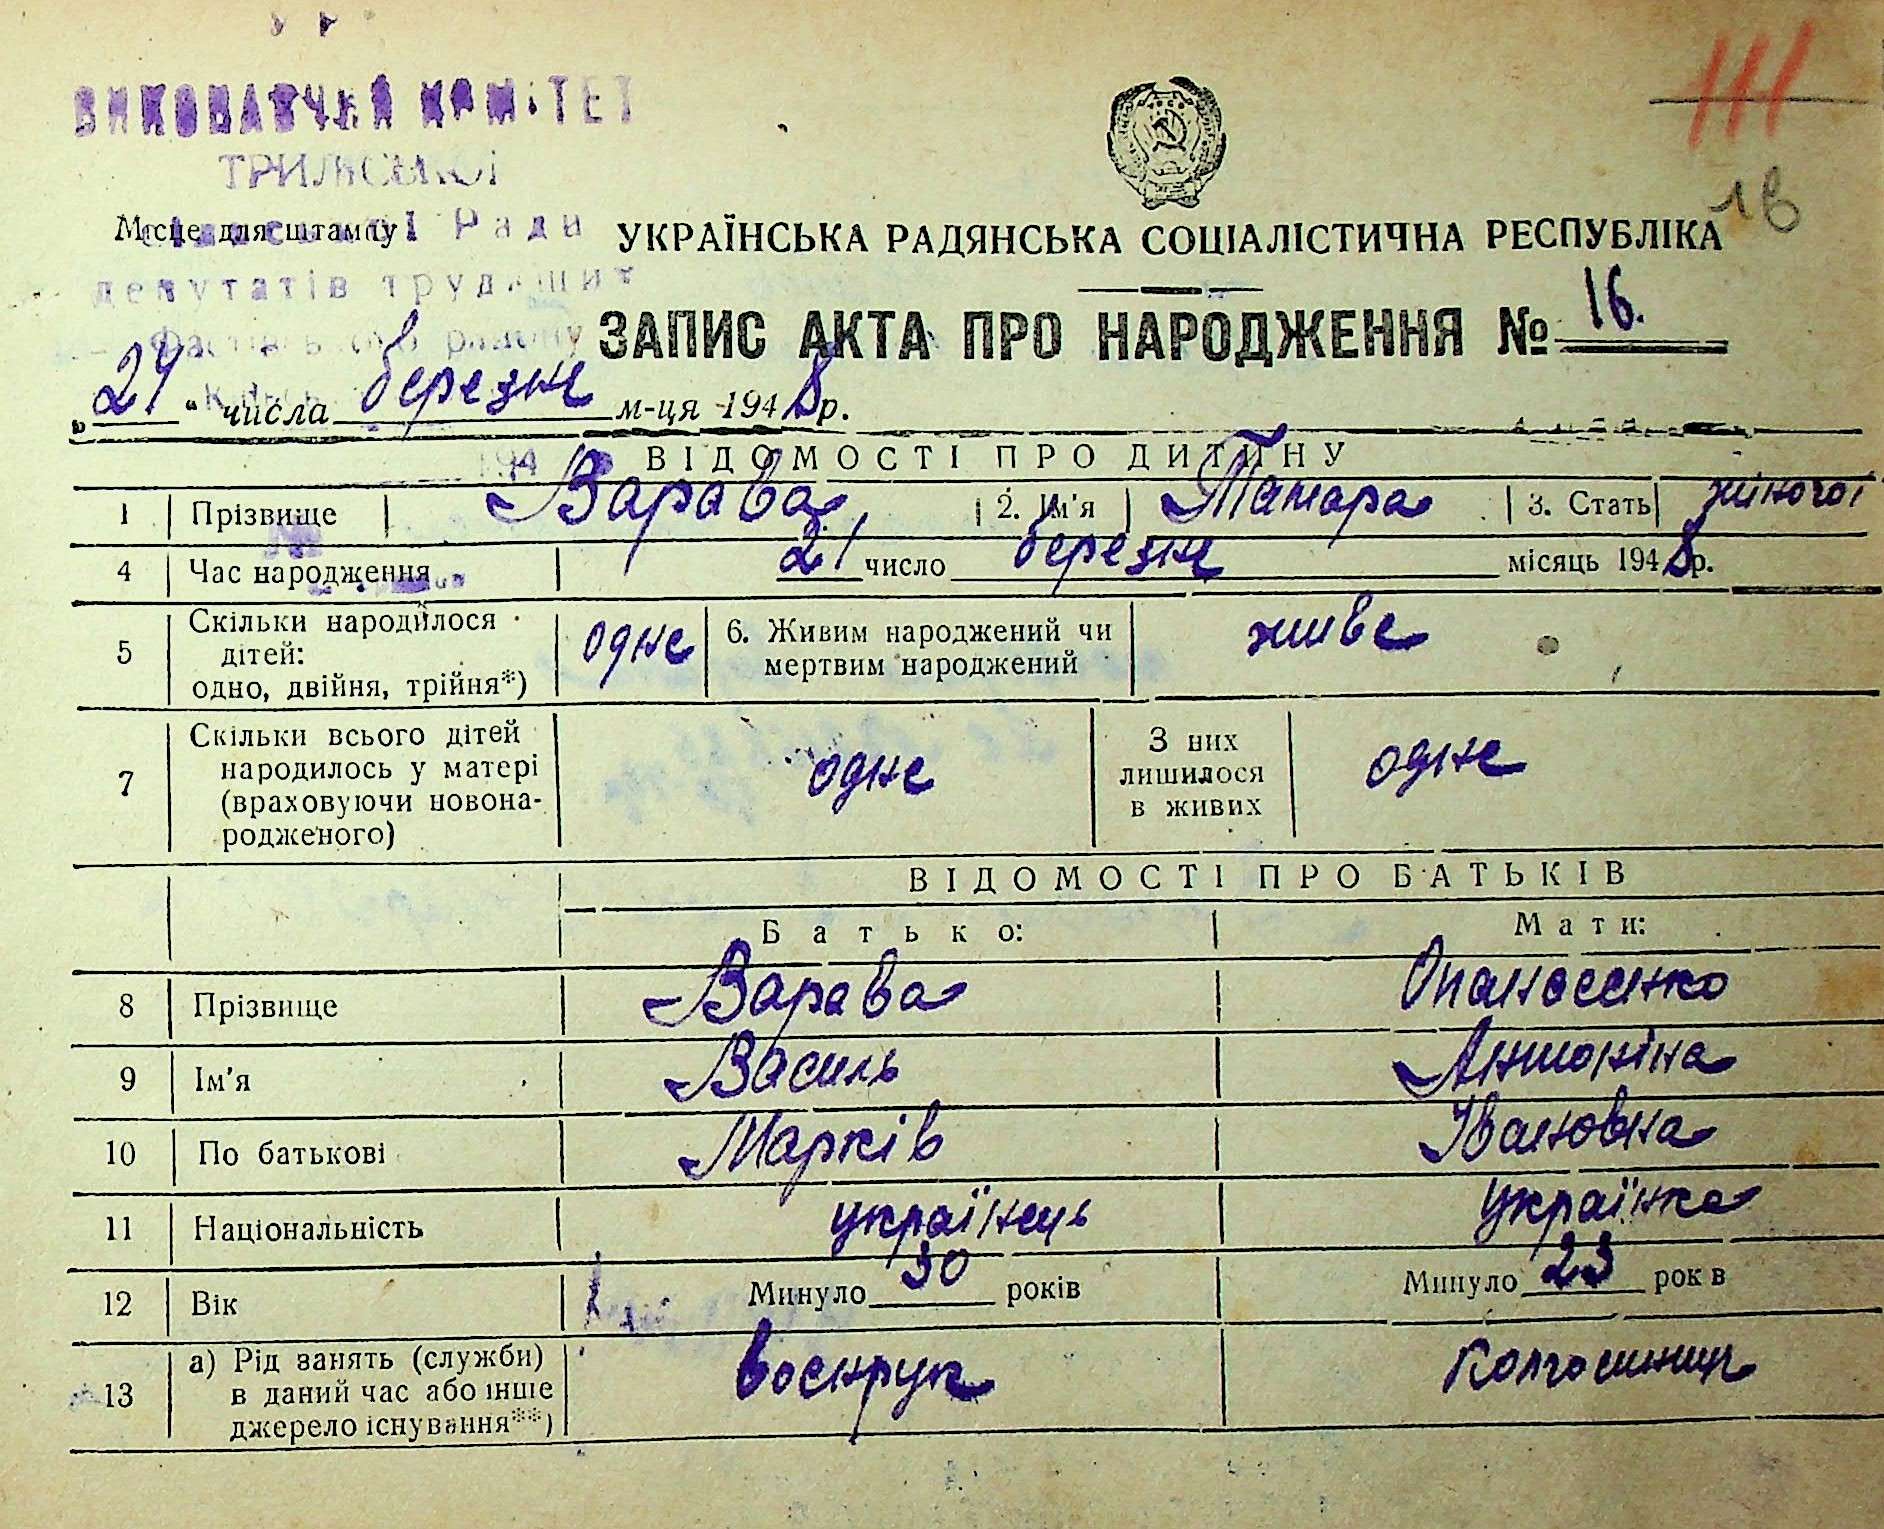 ВИКОНАВЧИЙ КОМІТЕТ
ТРИЛІСЬКОЇ
111
18
Місце для штампу
Ради
УКРАЇНСЬКА РАДЯНСЬКА СОЦІАЛІСТИЧНА РЕСПУБЛІКА
депутатів трудящих
ЗАПИС АКТА ПРО НАРОДЖЕННЯ № 16.
„24“ числа березня м-ця 1948 р.
194
ВІДОМОСТІ ПРО ДИТИНУ
1 Прізвище Варава 2. Ім'я Тамара 3. Стать жіночої
4 Час народження 21 число березня місяць 1948 р.
5 Скільки народилося дітей: одно, двійня, трійня*) одне 6. Живим народжений чи мертвим народжений живе
7 Скільки всього дітей народилось у матері (враховуючи новонародженого) одне З них лишилося в живих одне
ВІДОМОСТІ ПРО БАТЬКІВ
Батько: Мати:
8 Прізвище Варава Опанасенко
9 Ім'я Василь Антоніна
10 По батькові Марків Івановна
11 Національність українець українка
12 Вік Минуло 30 років Минуло 23 рок в
13 а) Рід занять (служби) в даний час або інше джерело існування**) воєнрук колгоспниця